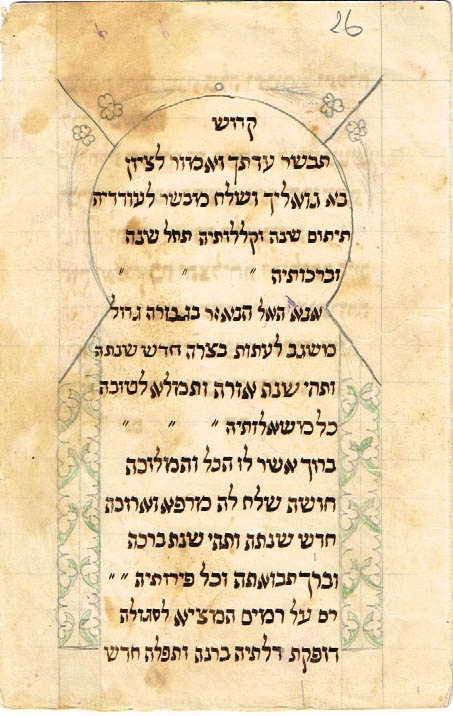 26
קדוש
תבשר עדתך ואמור לציון
בא גואליך ושלח מבשר לעודדיה
תיתום שנה וקללותיה תחל שנה
וברכותיה " " "
אנא האל הנאזר בגבורה גדול
משגב לעתות בצרה חדש שנתה
ותהי שנת אורה ותמלא לטובה
כל מישאלותיה " " "
ברוך אשר לו הכל והמלוכה
חושה שלח לה מרפא וארוכה
חדש שנתה ותהי שנת ברכה
וברך תבואתה וכל פירותיה " "
רם על רמים המציא לסגולה
דופקת דלתיה ברנה ותפלה חדש